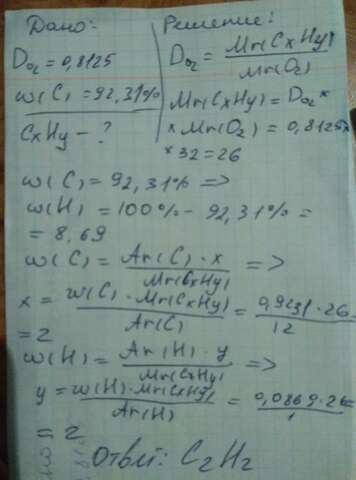 Дано:
D₀₂ = 0,8125
w(C) = 92,31%
CxHy - ?
Решение:
D₀₂ = Mr(CxHy) / Mr(O₂)
Mr(CxHy) = D₀₂ ×
× Mr(O₂) = 0,8125 ×
× 32 = 26
w(C) = 92,31% =>
w(H) = 100% - 92,31% =
= 8,69
w(C) = Ar(C) · x / Mr(CxHy) =>
x = w(C) · Mr(CxHy) / Ar(C) = 0,9231 · 26 / 12
= 2
w(H) = Ar(H) · y / Mr(CxHy) =>
y = w(H) · Mr(CxHy) / Ar(H) = 0,0869 · 26 / 1 =
= 2
Ответ: C₂H₂